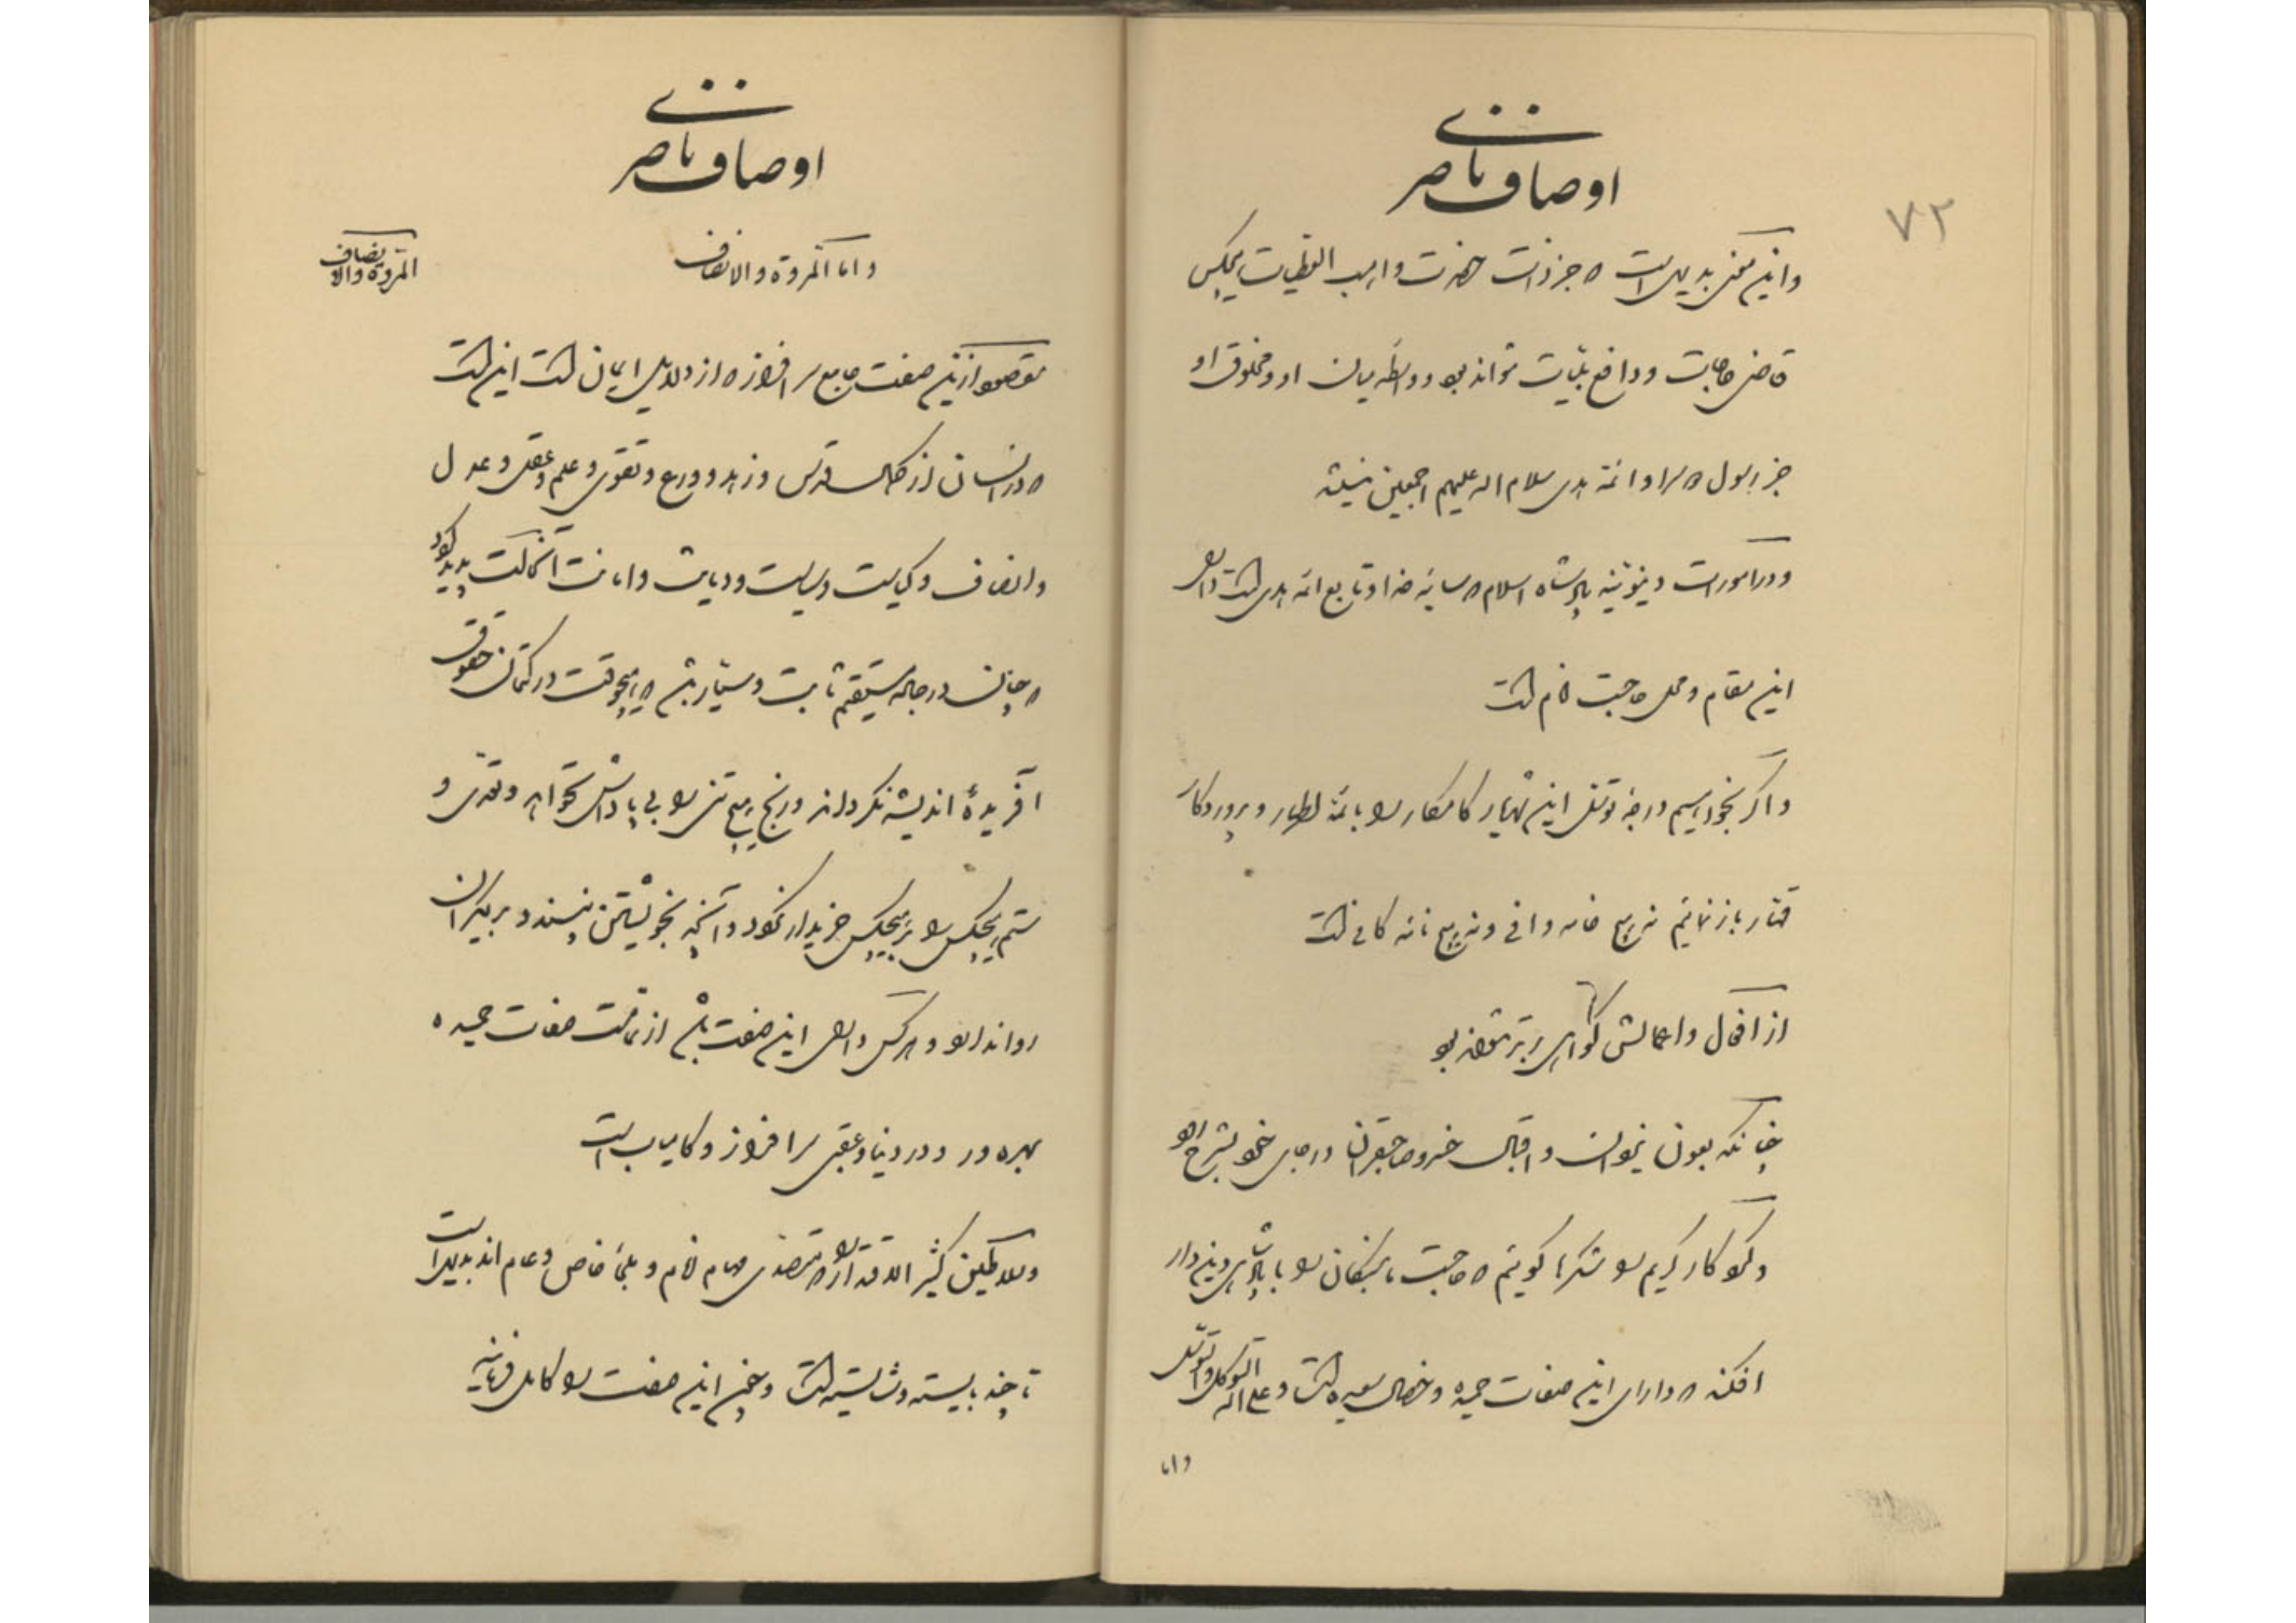 اوصاف ناصری
۷۲
و این معنی بدیهی است که جز ذات حضرت واهب العطیات هیچکس
قاضی حاجات و دافع بلیات نتواند بود و واسطه میان او و مخلوق او
جز رسول و ائمه هدی سلام الله علیهم اجمعین نیستند
و در امورات دنیویّه پادشاه اسلام که سایه خدا و تابع ائمه هدی است دارای
این مقام و محل حاجت انام است
و اگر بخواهیم درجه توسل این شهریار کامکار را با ائمه اطهار و پروردگار
قهار باز نمائیم نه هیچ خامه وافی و نه هیچ نامه کافی است
از افعال و اعمالش گواهی برتر نتواند بود
چنانکه بعون یزدان و اقبال خسرو صاحبقران در جای خود بشرح رود
و نکو کار کریم را شکرها گوئیم که حاجت ما بندگان را با پادشاهی دین دار
افکند که دارای این صفات حمیده و خصال سعیده است و علی الله التوکل و التوسل
و اما
اوصاف ناصری
و اما المروة والانصاف
المروة والانصاف
مقصود از این صفت جامع سرافراز که از دلایل ایمان است این است
که در انسان از کمال قدس و زهد و ورع و تقوی و علم و عقل و عدل
و انصاف و کیاست و سیاست و دیانت و امانت آن ملکت پدید گردد
که چنان در جاده مستقیم ثابت و سیّار باشد که هیچوقت در کتمان حقوق
آفریدهٔ اندیشه نگرداند و رنج هیچ تنی را بی پاداش نخواهد و تعدّی و
ستم هیچکس را بر هیچکس خریدار نگردد و آنچه بخویشتن نپسندد بر دیگران
روا ندارد و هر کس دارای این صفت باشد از تمامت صفات حمیده
بهره ور و در دنیا و عقبی سرافراز و کامیاب است
و سلاطین کثیر الاقتدار را که متصدی مهام انام و ملجأ خاص و عام اند بدیهی است
تا چند بایسته و شایسته است و چون این صفت را کامل فرمایند